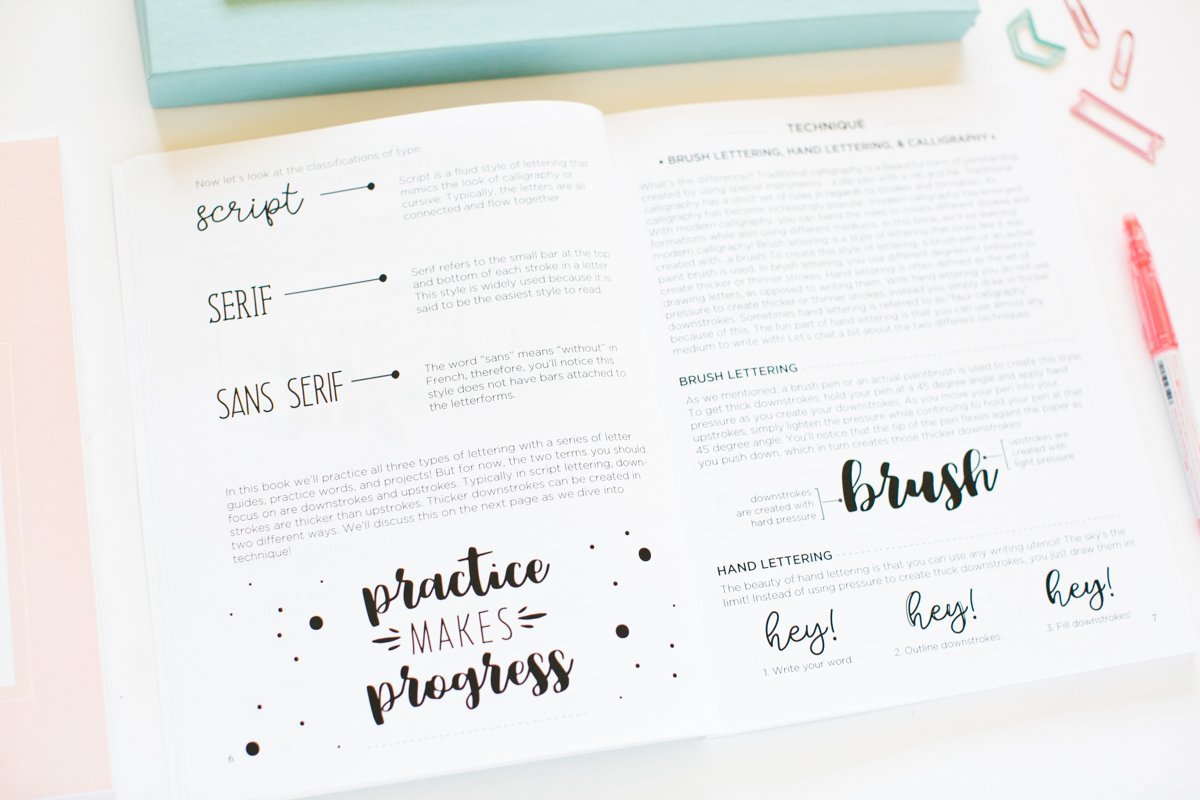 Now let's look at the classifications of type.
script
Script is a fluid style of lettering that
mimics the look of calligraphy or
cursive. Typically, the letters are as
connected and flow together.
SERIF
Serif refers to the small bar at the top
and bottom of each stroke in a letter.
This style is widely used because it is
said to be the easiest style to read.
SANS SERIF
The word "sans" means "without" in
French, therefore, you'll notice this
style does not have bars attached to
the letterforms.
In this book we'll practice all three types of lettering with a series of letter
guides, practice words, and projects! But for now, the two terms you should
focus on are downstrokes and upstrokes. Typically in script lettering, down-
strokes are thicker than upstrokes. Thicker downstrokes can be created in
two different ways. We'll discuss this on the next page as we dive into
technique!
practice
MAKES
progress
6
TECHNIQUE
• BRUSH LETTERING, HAND LETTERING, & CALLIGRAPHY •
What's the difference?! Traditional calligraphy is a beautiful form of penmanship
created by using special instruments - a dip pen with a nib and ink. Traditional
calligraphy has a strict set of rules in regards to strokes and formation. As
calligraphy has become increasingly popular, modern calligraphy has emerged.
With modern calligraphy, you can bend the rules to create new letter strokes and
formations while also using different mediums. In this book, we'll be learning
modern calligraphy! Brush lettering is a style of lettering that looks like it was
created with... a brush! To create this style of lettering, a brush pen or an actual
paint brush is used. In brush lettering, you use different degrees of pressure to
create thicker or thinner strokes. Hand lettering is often defined as the art of
drawing letters, as opposed to writing them. With hand lettering, you do not use
pressure to create thicker or thinner strokes, instead you simply draw in your
downstrokes. Sometimes hand lettering is referred to as "faux calligraphy"
because of this. The fun part of hand lettering is that you can use almost any
medium to write with! Let's chat a bit about the two different techniques.
BRUSH LETTERING
As we mentioned, a brush pen or an actual paintbrush is used to create this style.
To get thick downstrokes, hold your pen at a 45 degree angle and apply hard
pressure as you create your downstrokes. As you move your pen into your
upstrokes, simply lighten the pressure while continuing to hold your pen at that
45 degree angle. You'll notice that the tip of the pen flexes againt the paper as
you push down, which in turn creates those thicker downstrokes!
downstrokes
are created with
hard pressure
brush
upstrokes are
created with
light pressure
HAND LETTERING
The beauty of hand lettering is that you can use any writing utencil! The sky's the
limit! Instead of using pressure to create thick downstrokes, you just draw them in!
hey!
hey!
hey!
1. Write your word.
2. Outline downstrokes.
3. Fill downstrokes!
7